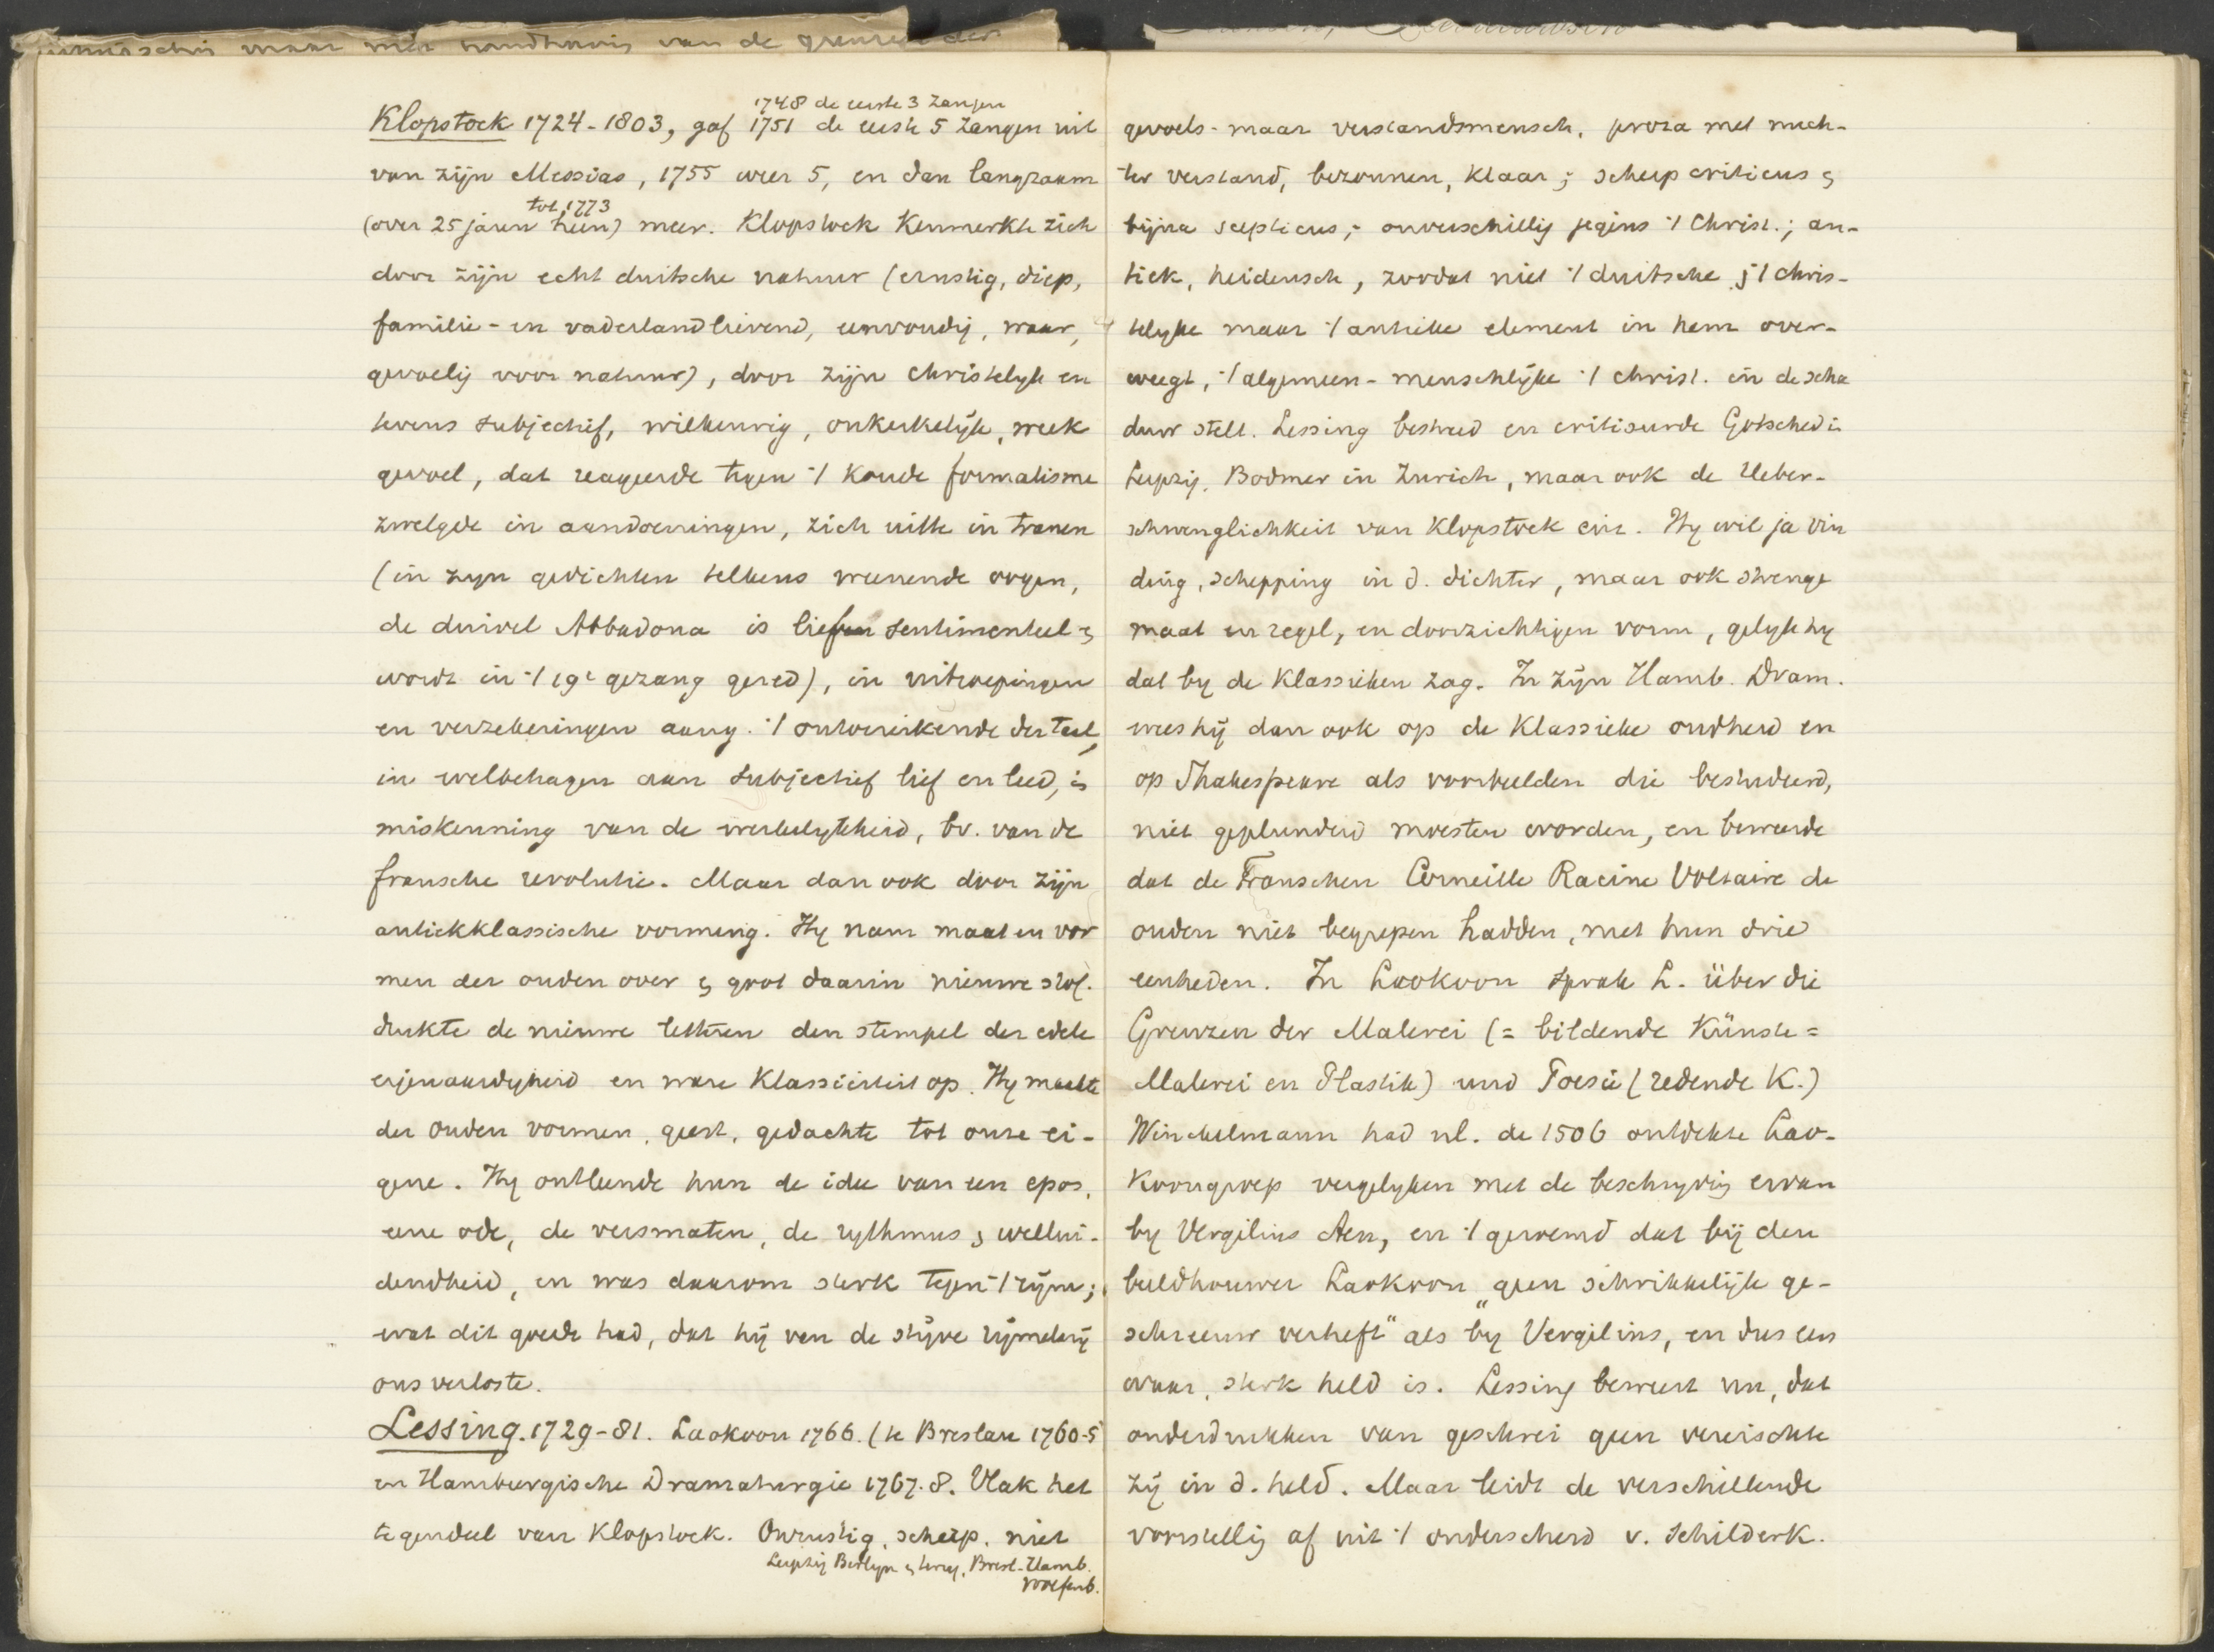 maar mits handhaving van de grenzen der
1748 de eerste 3 zangen
Klopstock 1724-1803, gaf 1751 de eerste 5 zangen uit
van zijn Messias, 1755 weer 5, en dan langzaam
tot 1773
(over 25 jaren heen) meer. Klopstock kenmerkte zich
door zijn echt duitsche natuur (ernstig, diep,
familie- en vaderlandlievend, eenvoudig, waar,
gevoelig voor natuur), door zijn christelijk en
tevens subjectief, willekeurig, onkerkelijk, week
gevoel, dat reageerde tegen 't koude formalisme
zwelgde in aandoeningen, zich uitte in tranen
(in zyn gedichten telkens weenende oogen,
de duivel Abbadona is sentimenteel &
wordt in 't 19e gezang gered), in uitroepingen
en verzekeringen aang. 't ontoereikende der taal,
in welbehagen aan subjectief lief en leed, in
miskenning van de werkelykheid, bv. van de
fransche revolutie. Maar dan ook door zijn
antiekklassische vorming. Hy nam maat en vor
men der ouden over & goot daarin nieuwe stof.
drukte de nieuwe letteren den stempel der edele
eigenaardigheid en ware klassiciteit op. Hy maakte
der ouden vormen, geest, gedachte tot onze ei-
gene. Hy ontleende hun de idee van een epos,
eene ode, de versmaten, de rythmus & wellui-
dendheid, en was daarom sterk tegen 't rijm;
wat dit goede had, dat hij van de stijve rijmelarij
ons verloste.
Lessing. 1729-81. Laokoon 1766. (te Breslau 1760-5
en Hamburgische Dramaturgie 1767.8. Vlak het
tegendeel van Klopstock. Onrustig, scherp, niet
Leipzig Berlyn & terug, Bresl. Hamb.
Wolfenb.
gevoels- maar verstandsmensch, proza met nuch-
ter verstand, bezonnen, klaar; scherp criticus &
bijna scepticus; onverschillig jegens 't Christ.; an-
tiek, heidensch, zoodat niet 't duitsche & 't chris-
telyke maar 't antieke element in hem over-
weegt, 't algemeen-menschlijke 't christ. in de scha
duw stelt. Lessing bestreed en critiseerde Gotsched in
Leipzig, Bodmer in Zurich, maar ook de Ueber-
schwenglichkeit van Klopstock enz. Hy wil ja vin
ding, schepping in d. dichter, maar ook strenge
maat en regel, en doorzichtigen vorm, gelyk hy
dat by de Klassieken zag. In zijn Hamb. Dram.
wees hij dan ook op de klassieke oudheid en
op Shakespeare als voorbeelden die bestudeerd,
niet geplunderd moesten worden, en beweerde
dat de Franschen Corneille Racine Voltaire de
ouden niet begrepen hadden, met hun drie
eenheden. In Laokoon sprak L. über die
Grenzen der Malerei (= bildende Künste =
Malerei en Plastik) und Poesie (redende K.)
Winckelmann had nl. de 1506 ontdekte Lao-
koongroep vergelyken met de beschryving ervan
by Vergilius Aen, en 't geroemd dat bij den
beeldhouwer Laokoon "geen schrikkelijk ge-
schreeuw verheft" als by Vergilius, en dus een
waar, sterk held is. Lessing beweert nu, dat
onderdrukken van geschrei geen vereischte
zij in d. held. Maar leidt de verschillende
voorstellig af uit 't onderscheid v. schilderk.